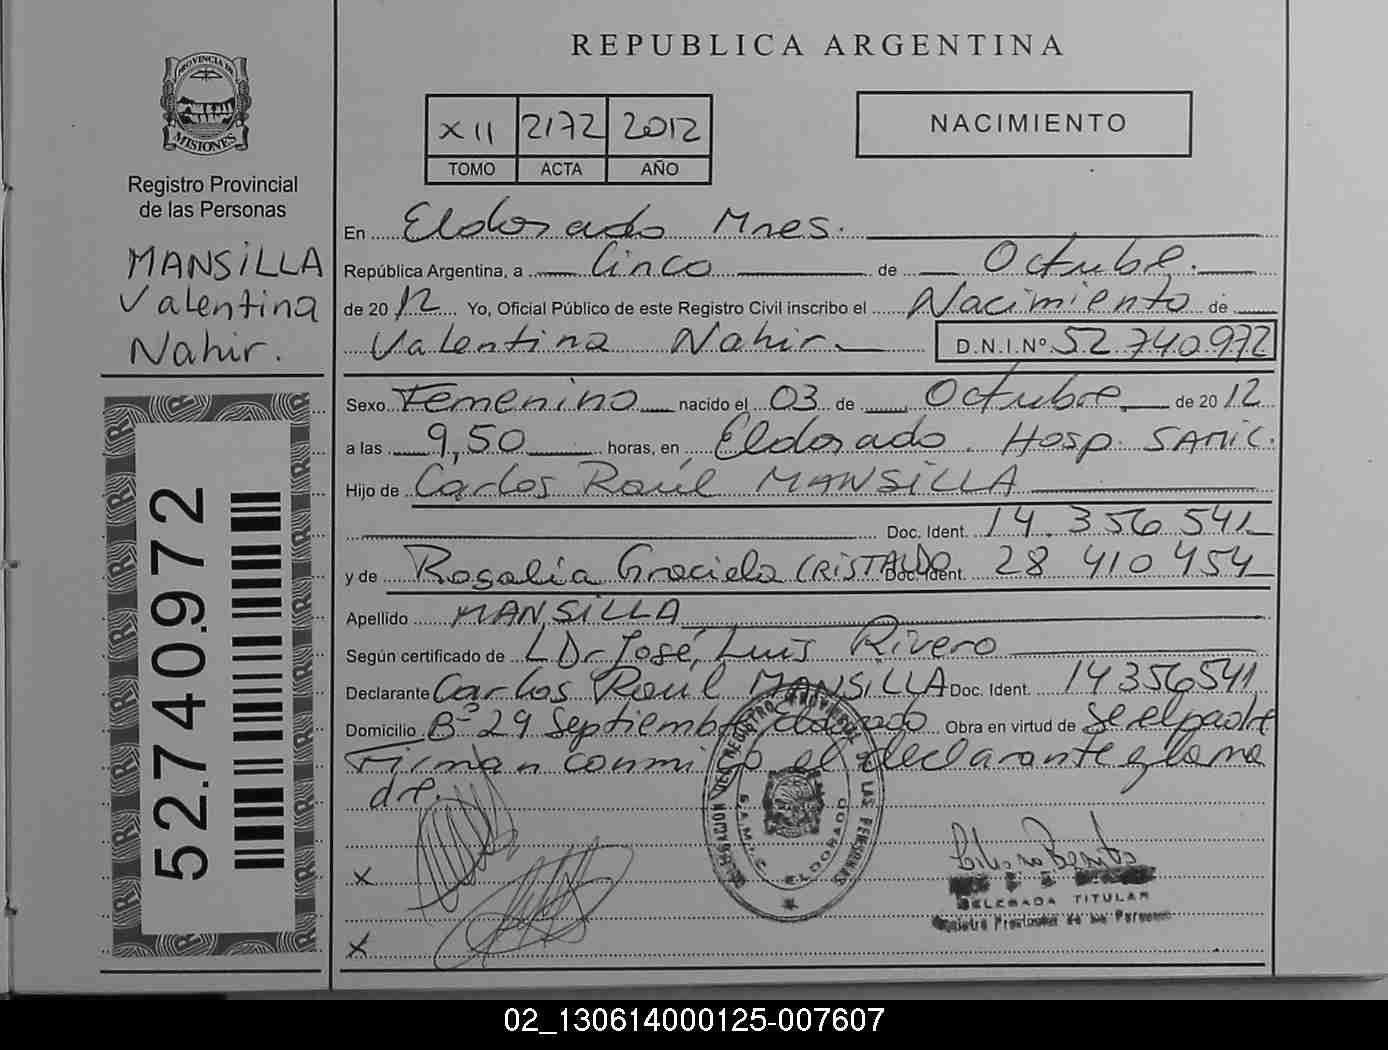 REPUBLICA ARGENTINA
PROVINCIA DE
MISIONES
Registro Provincial
de las Personas
MANSILLA
Valentina
Nahir.
52.740.972
XII 2172 2012
TOMO ACTA AÑO
NACIMIENTO
En Eldorado Mnes.
República Argentina, a Cinco de Octubre.
de 2012 Yo, Oficial Público de este Registro Civil inscribo el Nacimiento de
Valentina Nahir. D.N.I.Nº 52.740.972
Sexo Femenino nacido el 03 de Octubre de 2012
a las 9,50 horas, en Eldorado. Hosp. SAMIC.
Hijo de Carlos Raúl MANSILLA
Doc. Ident. 14.356.541
y de Rosalía Graciela CRISTALDO Doc. Ident. 28 410 454
Apellido MANSILLA
Según certificado de Dr José Luis Rivero
Declarante Carlos Raúl MANSILLA Doc. Ident. 14356541
Domicilio Bº 29 Septiembre Obra en virtud de Ser el padre
Firman conmigo el declarante y la ma
dre.
S.A.M.I.C. ELDORADO
X
X
DELEGADA TITULAR
Registro Provincial de las Personas
02_130614000125-007607